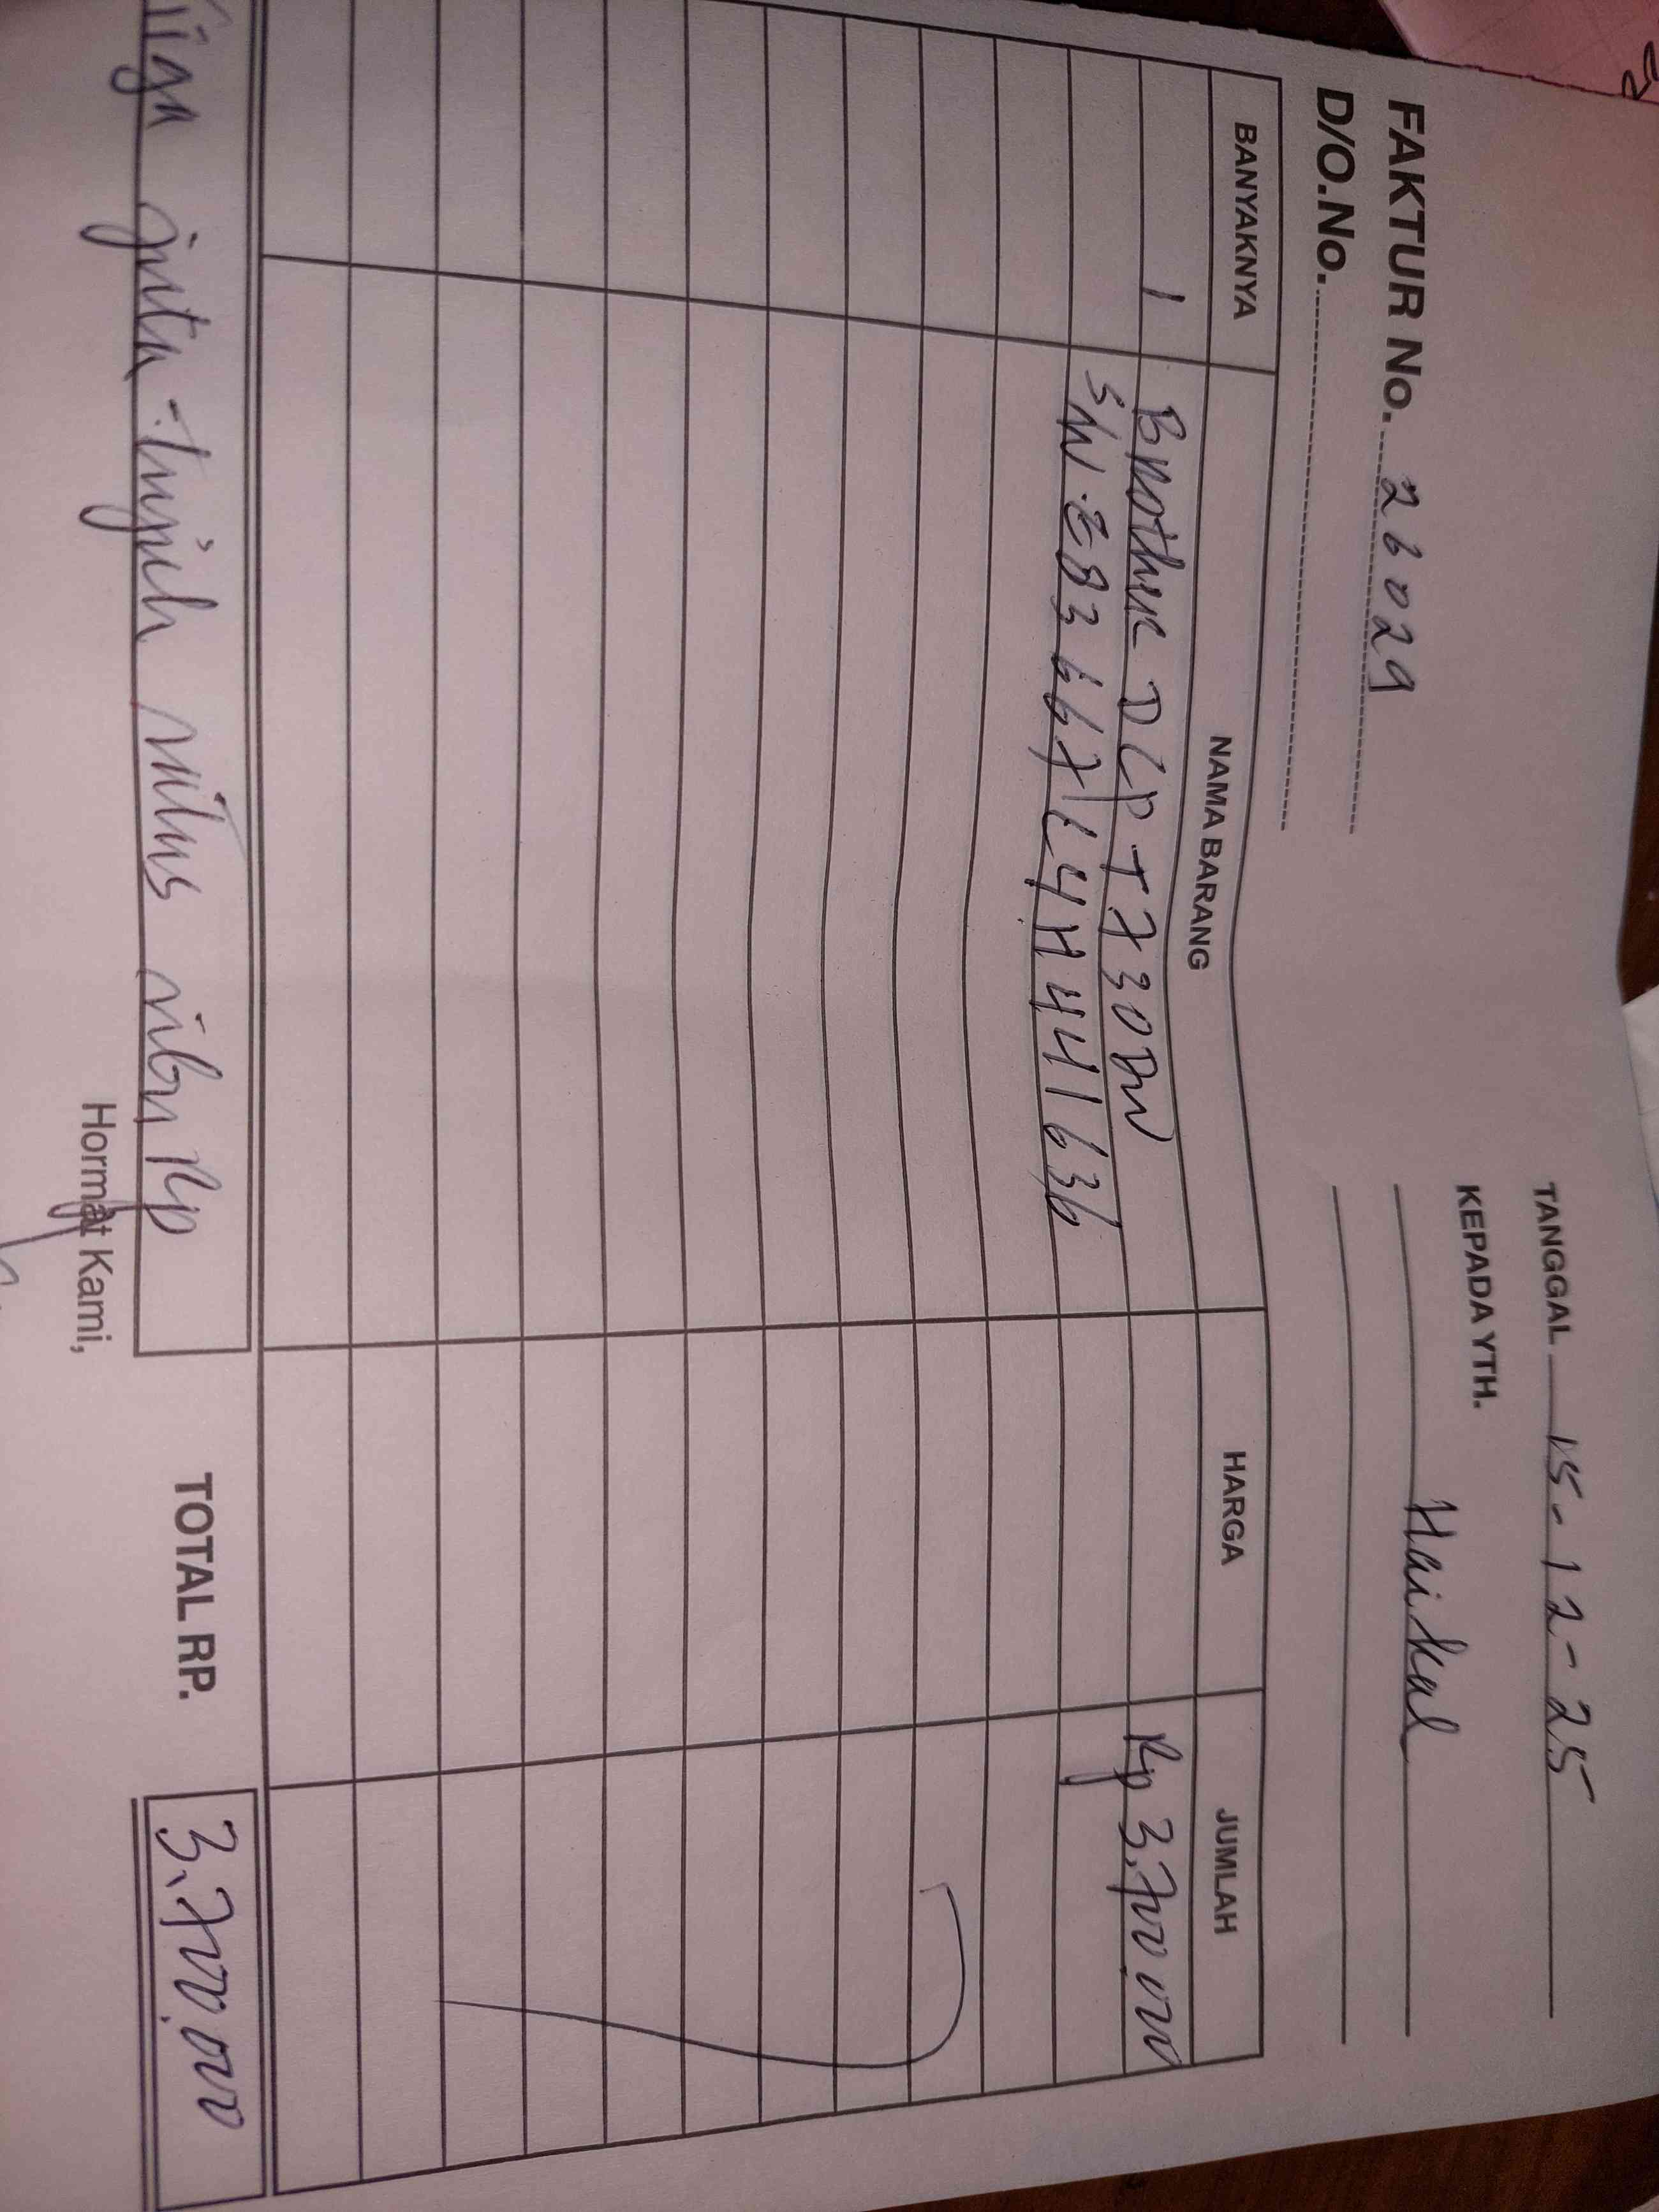 TANGGAL 15-12-25
FAKTUR No. 26029
KEPADA YTH.
D/O.No.
Haikal
BANYAKNYA NAMA BARANG HARGA JUMLAH
1 Brother DCP T730DW Rp 3.700.000
S/N. E83667L4H441636
Tiga juta tujuh ratus ribu Rp
TOTAL RP. 3.700.000
Hormat Kami,